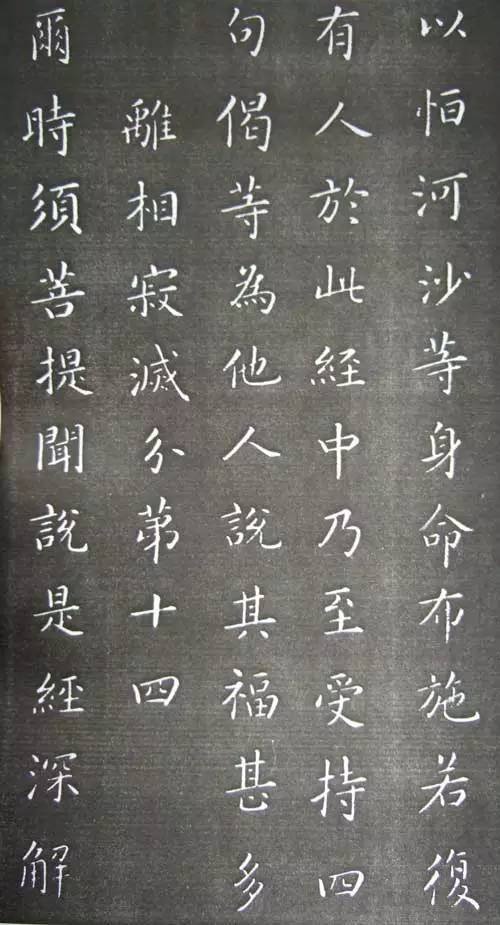 以恒河沙等身命布施若復
有人於此經中乃至受持四
句偈等為他人說其福甚多
離相寂滅分第十四
爾時須菩提聞說是經深解